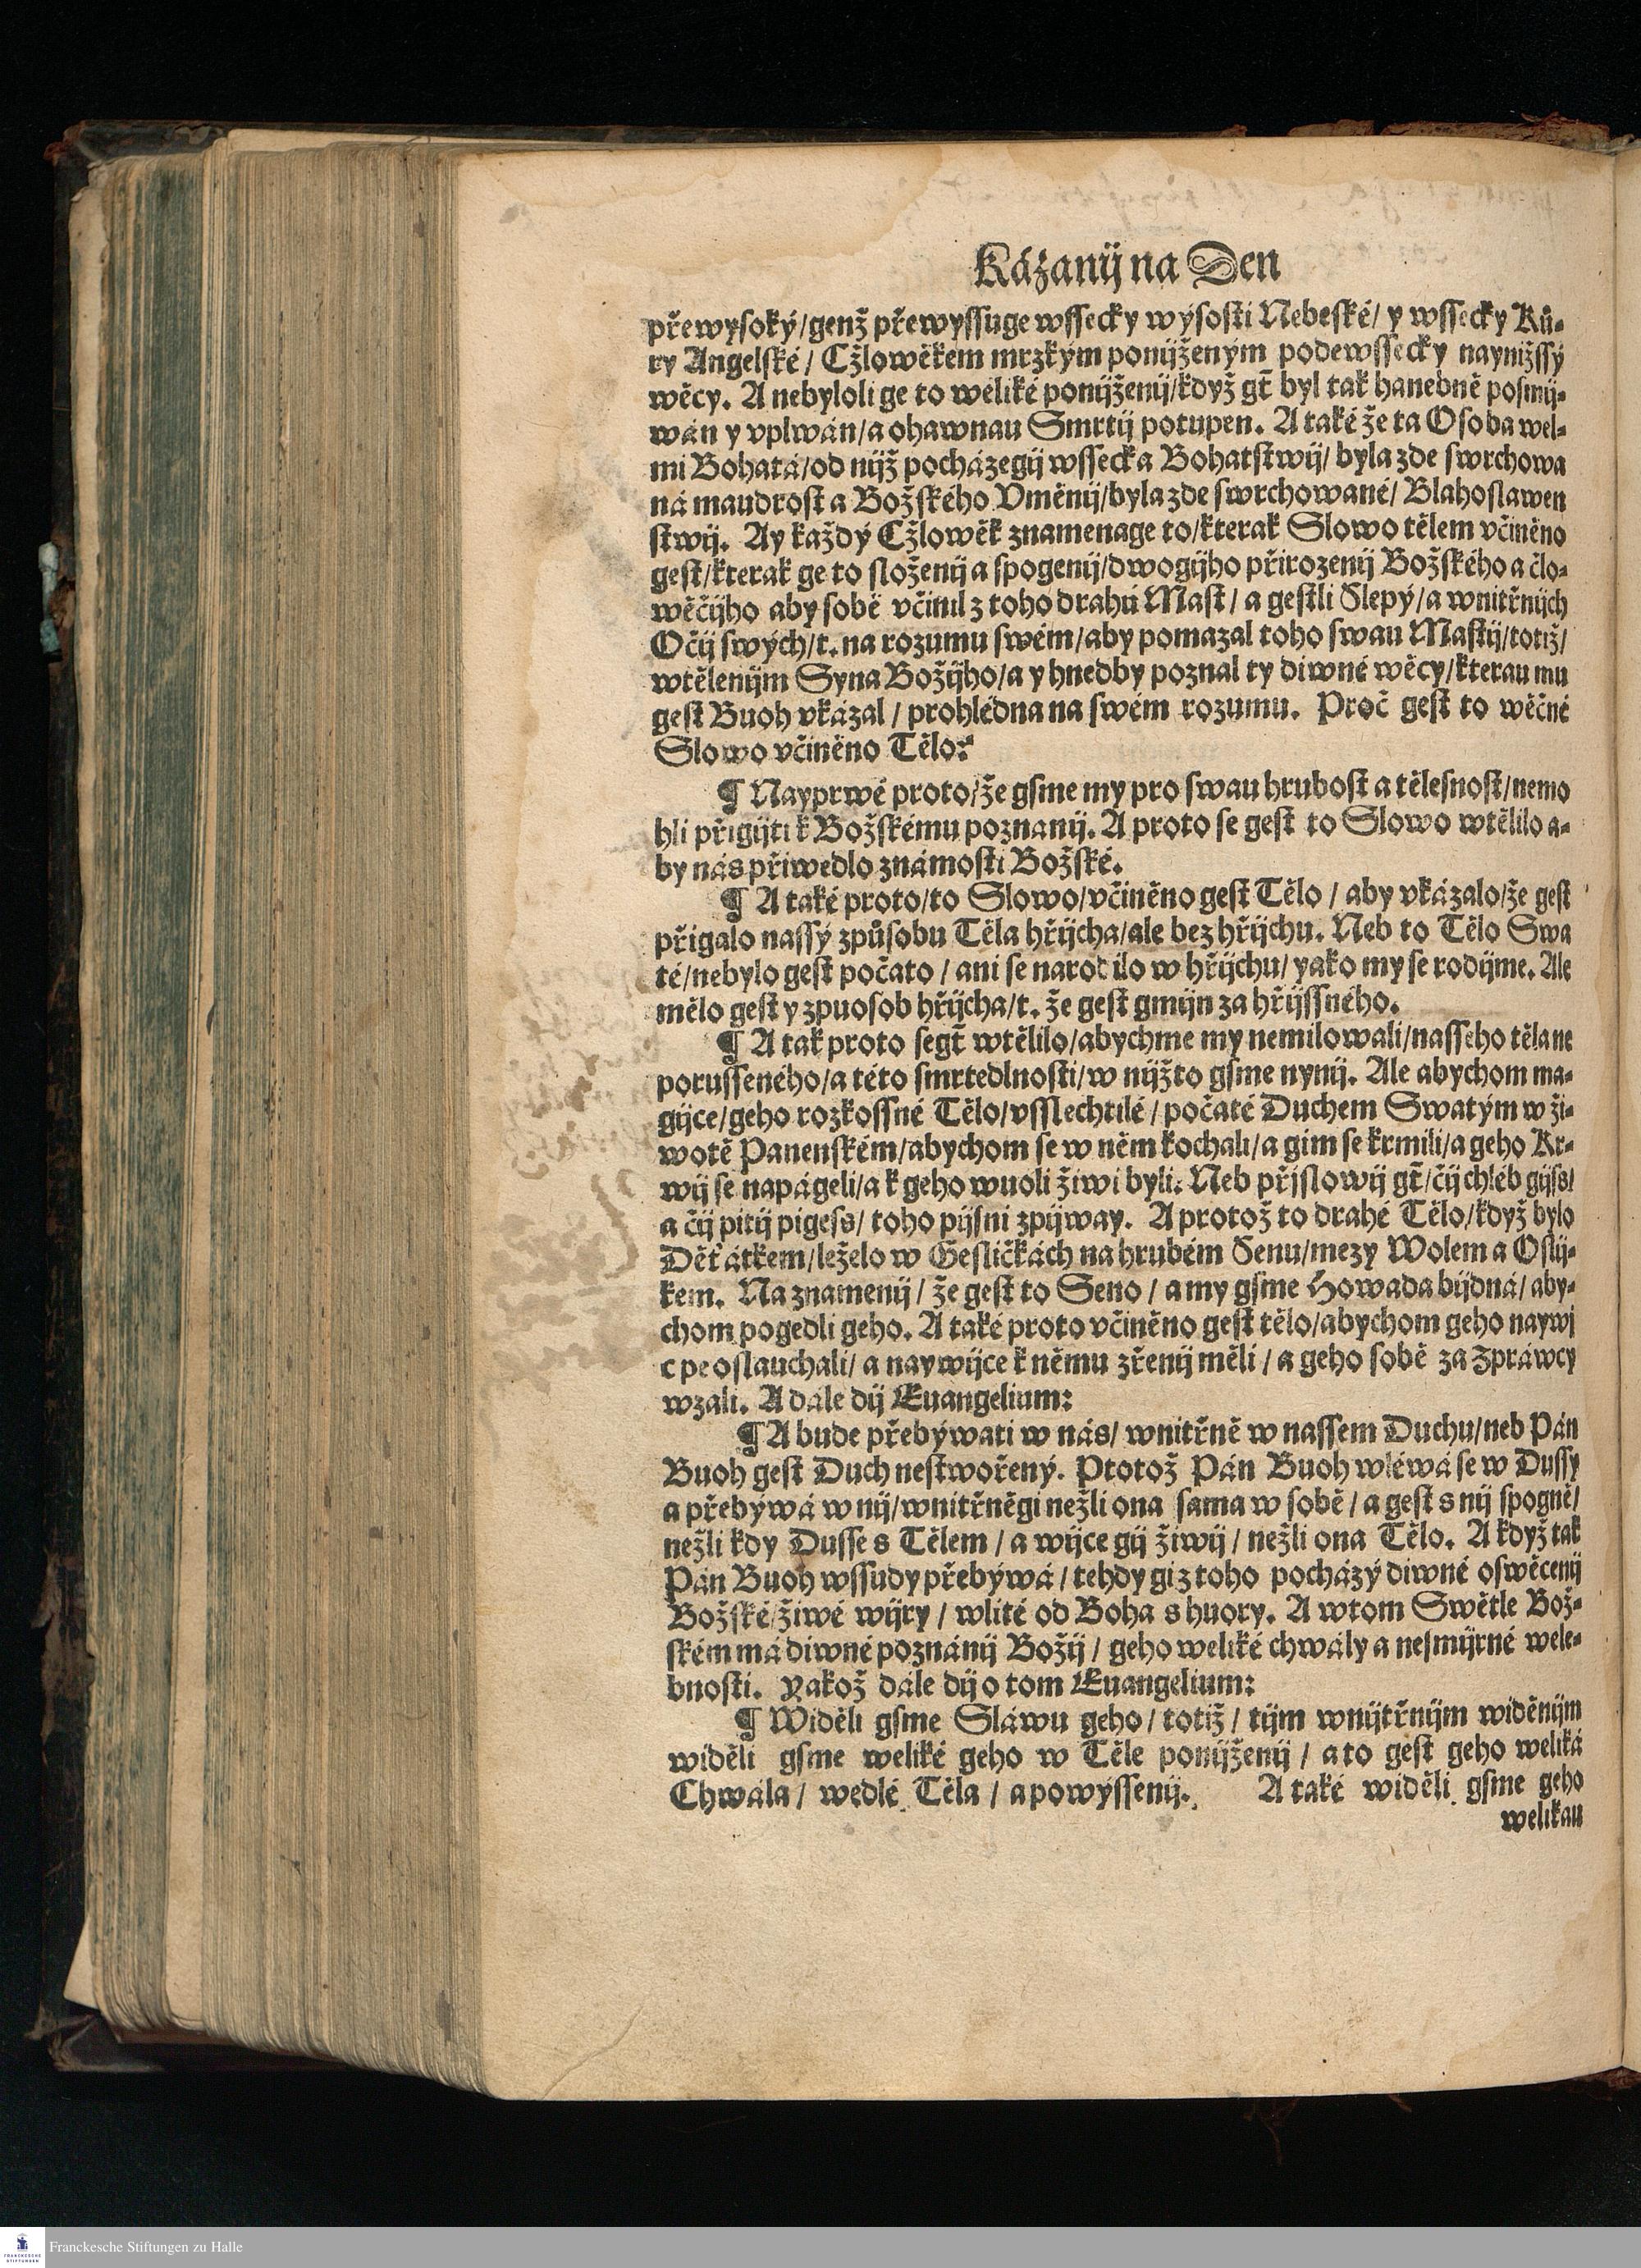 Kázanij na Den
přewysoký/genž přewyssuge wssecky wýsosti Nebeské/ y wssecky Ků-
ry Angelské/ Cžlowěkem mrzkým ponijženým podewssecky naynižssý
wěcy. A nebyloli ge to weliké ponijženij/když gt̃ byl tak hanebně posmij-
wán y vplwán/a ohawnau Smrtij potupen. A také že ta Osoba wel-
mi Bohatá/od nijž pocházegij wssecka Bohatstwij/ byla zde swrchowa
ná maudrost a Božského Vměnij/byla zde swrchowané/ Blahoslawen
stwij. Ay každý Cžlowěk znamenage to/kterak Slowo tělem včiněno
gest/kterak ge to složenij a spogenij/dwogijho přirozenij Božského a člo-
wěčijho aby sobě včinil z toho drahú Mast/ a gestli Slepý/a wnitřnijch
Očij swých/t. na rozumu swém/aby pomazal toho swau Mastij/totiž/
wtělenijm Syna Božijho/a y hnedby poznal ty diwné wěcy/kterau mu
gest Buoh vkázal / prohlédna na swém rozumu. Proč gest to wěčné
Slowo včiněno Tělo?
¶ Nayprwé proto/že gsme my pro swau hrubost a tělesnost/nemo
hli přigijti k Božskému poznanij. A proto se gest to Slowo wtělilo a-
by nás přiwedlo známosti Božské.
¶ A také proto/to Slowo/včiněno gest Tělo / aby vkázalo/že gest
přigalo nassý způsobu Těla hřijcha/ale bez hřijchu. Neb to Tělo Swa
té/nebylo gest počato / ani se narodilo w hřijchu/ yako my se rodijme. Ale
mělo gest y zpuosob hřijcha/t. že gest gmijn za hřijssného.
¶ A tak proto segt̃ wtělilo/abychme my nemilowali/nasseho těla ne
porusseného/a této smrtedlnosti/w nijžto gsme nynij. Ale abychom ma-
gijce/geho rozkossné Tělo/vsslechtilé / počaté Duchem Swatým w ži-
wotě Panenském/abychom se w něm kochali/a gim se krmili/a geho Kr-
wij se napágeli/a k geho wuoli žiwi byli. Neb přjslowij gt̃/čij chléb gijs/
a čij pitij pigess/ toho pijsni zpijway. A protož to drahé Tělo/když bylo
Děťátkem/leželo w Gesličkách na hrubém Senu/mezy Wolem a Oslij-
kem. Na znamenij/ že gest to Seno / a my gsme Howada bijdná/ aby-
chom pogedli geho. A také proto včiněno gest tělo/abychom geho naywj
c peoslauchali/ a naywijce k němu zřenij měli / a geho sobě za Zpráwcy
wzali. A dále dij Euangelium:
¶ A bude přebýwati w nás/ wnitřně w nassem Duchu/neb Pán
Buoh gest Duch nestwořený. Ptotož Pán Buoh wléwá se w Dussy
a přebýwá w nij/wnitřněgi nežli ona sama w sobě / a gest s nij spogně/
nežli kdy Dusse s Tělem / a wijce gij žiwij / nežli ona Tělo. A když tak
Pán Buoh wssudy přebýwá / tehdy gi z toho pocházý diwné oswěcenij
Božské/žiwé wijry / wlité od Boha s huory. A wtom Swětle Bož-
ském má diwné poznánij Božij / geho weliké chwály a nesmijrné wele-
bnosti. Yakož dále dij o tom Euangelium:
¶ Widěli gsme Sláwu geho / totiž / tijm wnijtřnijm widěnijm
widěli gsme weliké geho w Těle ponijženij / a to gest geho weliká
Chwála / wedlé Těla / a powýssenij. A také widěli gsme geho
welikau
Franckesche Stiftungen zu Halle